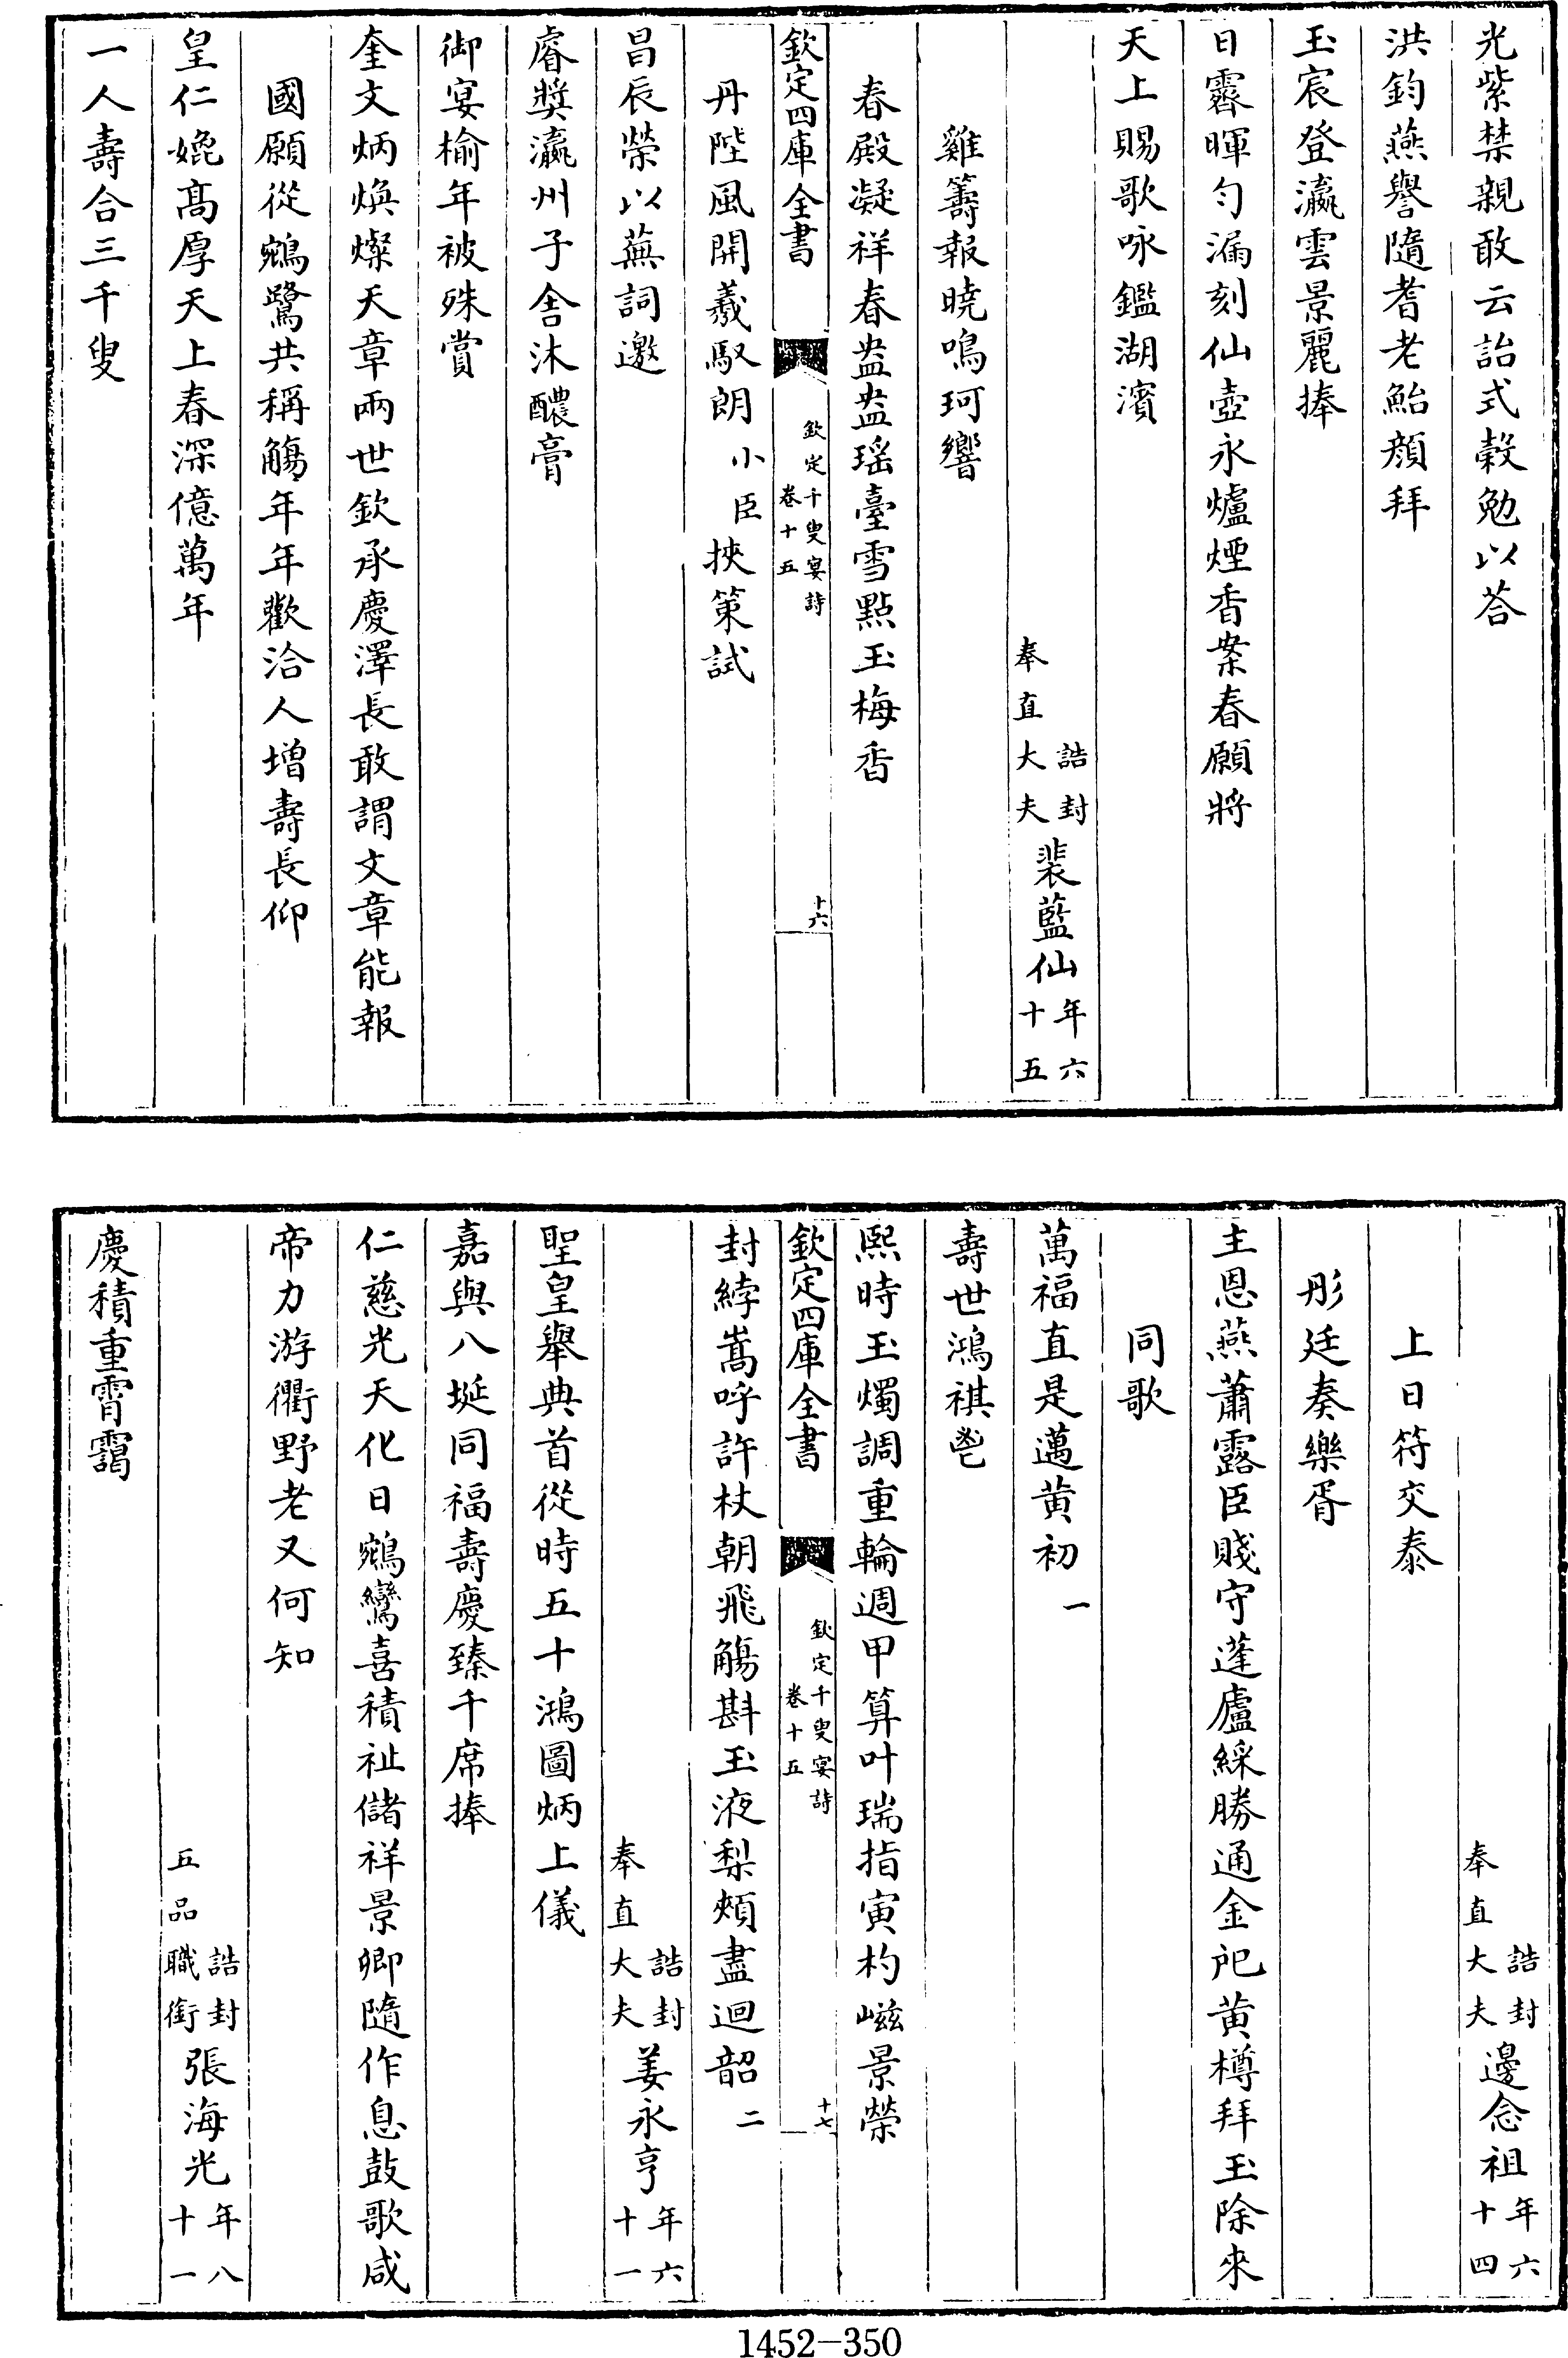 光紫禁親敢云詒式穀勉以荅
洪鈞燕譽隨耆老鮐顔拜
玉宸登瀛雲景麗捧
日霽暉勻漏刻仙壺永爐煙香案春願將
天上賜歌咏鑑湖濱
誥封
奉直大夫
裴藍仙
年六
十五
雞籌報曉鳴珂響
春殿凝祥春盎盎瑶臺雪點玉梅香
欽定四庫全書
欽定千叟宴詩
卷十五
十六
丹陛風開羲馭朗小臣挾策試
昌辰榮以蕪詞邀
睿奬瀛州子舍沐醲膏
御宴榆年被殊賞
奎文炳煥燦天章兩世欽承慶澤長敢謂文章能報
國願從鵷鷺共稱觴年年歡洽人增壽長仰
皇仁媲髙厚天上春深億萬年
一人壽合三千叟
誥封
奉直大夫
邊念祖
年六
十四
上日符交泰
彤廷奏樂胥
主恩燕蕭露臣賤守蓬廬綵勝通金戺黄樽拜玉除來
同歌
萬福直是邁黄初一
壽世鴻祺鬯
熙時玉燭調重輪週甲算叶瑞指寅杓嵫景榮
欽定四庫全書
欽定千叟宴詩
卷十五
十七
封綍嵩呼許杖朝飛觴斟玉液梨頰盡迴韶二
誥封
奉直大夫
姜永亨
年六
十一
聖皇舉典首從時五十鴻圖炳上儀
嘉與八埏同福壽慶臻千席捧
仁慈光天化日鵷鸞喜積祉儲祥景卿隨作息鼓歌咸
帝力游衢野老又何知
誥封
五品職銜
張海光
年八
十一
慶積重霄靄
1452-350